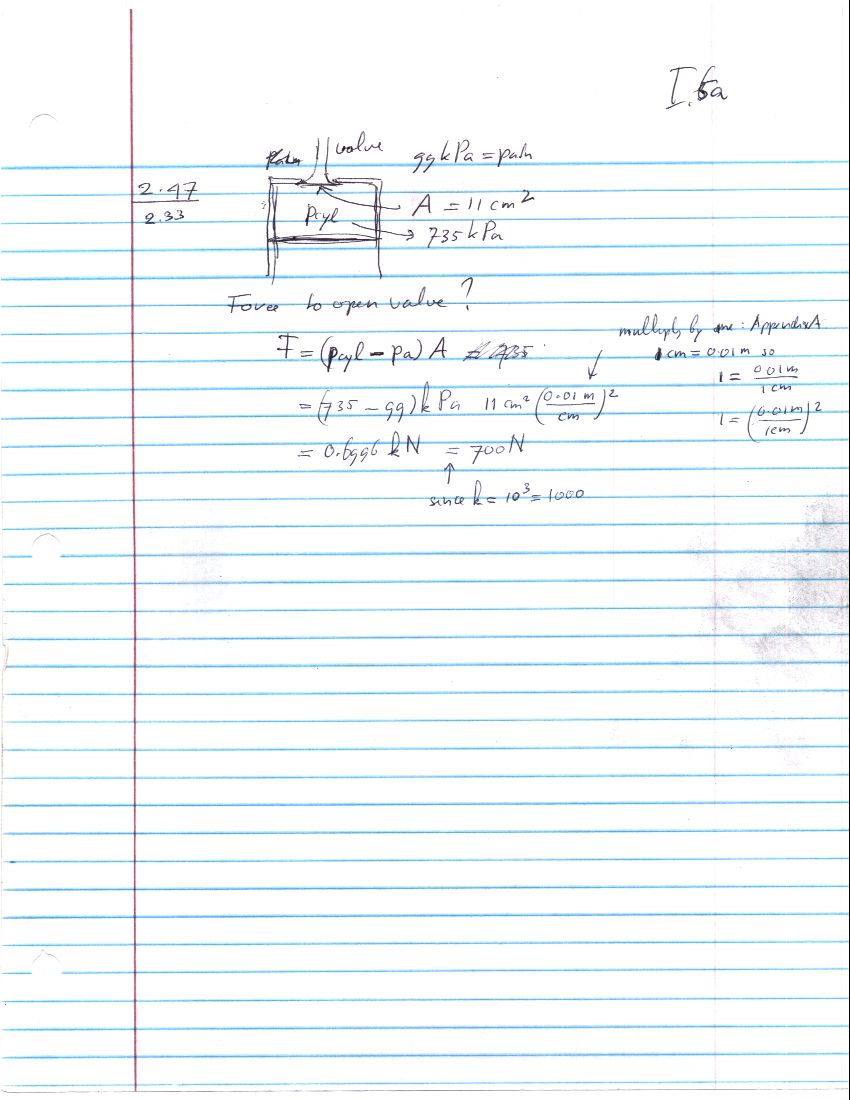 I.5a
patm valve 99 kPa = patm
2.47
2.33
A = 11 cm²
pcyl 735 kPa
Force to open valve?
F = (pcyl - pa) A
= (735 - 99) kPa 11 cm² (0.01 m / cm)²
= 0.6996 kN = 700 N
since k = 10³ = 1000
multiply by one: Appendix A
1 cm = 0.01 m so
1 = 0.01 m / 1 cm
1 = (0.01 m / 1 cm)²